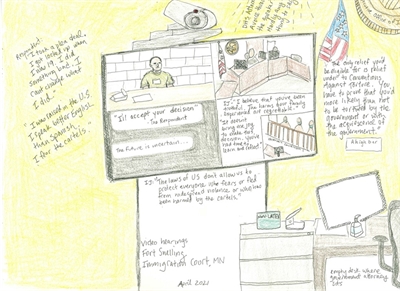 Respondent:
I took a plea deal.
I got locked up when
I was 19. I did
something bad. I
can't excuse what
I did.
I was raised in the U.S.
I speak better English
than Spanish.
I fear the cartels.
"I'll accept your decision"
- The Respondent
The future is uncertain...
IJ: "I believe that you've been
The harms your family
experienced are regrettable."
"It doesn't
bring me joy
to make that
decision. You've
had time to
learn and reflect"
"The only relief you'd
be eligible for is relief
under the Convention
Against Torture. You
have to prove that you'd
more likely than not
be tortured by the
government or with
the acquiescence of
the government."
IJ: "The laws of US don't allow us to
protect everyone who fears or fled
from violence or who has
been harmed by the cartels."
Video hearings
Fort Snelling
Immigration Court, MN
April 2021
LATEX
empty desk where
government attorney
sits